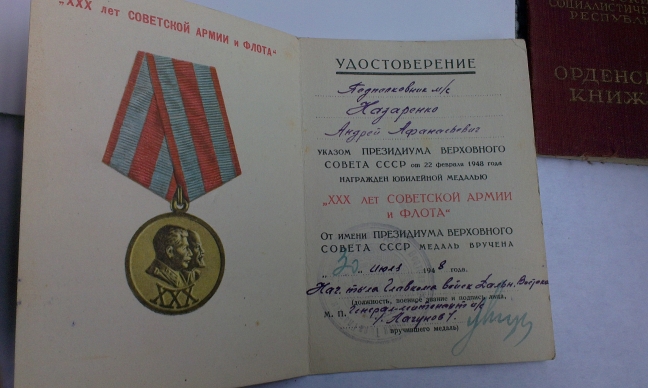 "XXX лет СОВЕТСКОЙ АРМИИ и ФЛОТА"
XXX
УДОСТОВЕРЕНИЕ
Подполковник м/с
Назаренко
Андрей Афанасьевич
УКАЗОМ ПРЕЗИДИУМА ВЕРХОВНОГО
СОВЕТА СССР от 22 февраля 1948 года
НАГРАЖДЕН ЮБИЛЕЙНОЙ МЕДАЛЬЮ
„XXX лет СОВЕТСКОЙ АРМИИ
и ФЛОТА"
От имени ПРЕЗИДИУМА ВЕРХОВНОГО
СОВЕТА СССР МЕДАЛЬ ВРУЧЕНА
„30" июля 1948 года.
Нач. тыла Главкома войск Дальн. Востока
(должность, военное звание и подпись лица,
М. П. Генерал-лейтенант и/с
/Лагунов/
вручившего медаль)
СОЦИАЛИСТИЧЕ
РЕСПУБЛИ
ОРДЕНС
КНИЖ